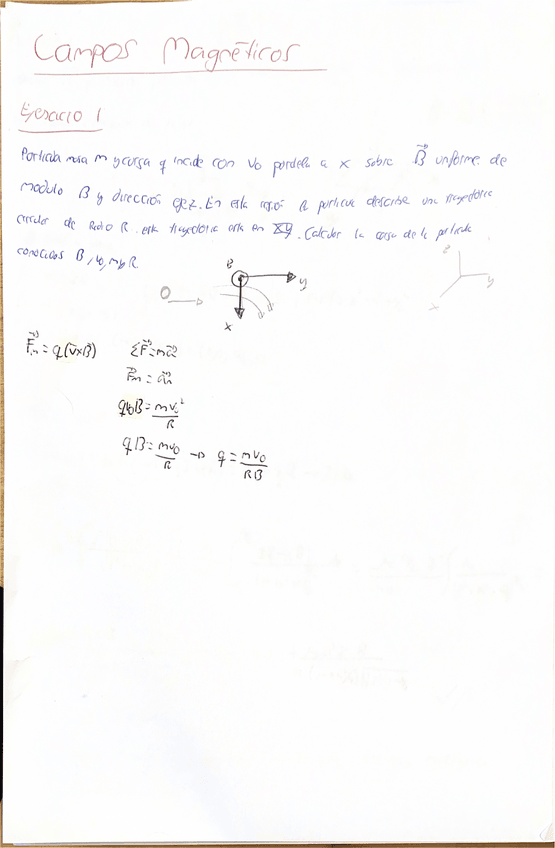 Campos Magnéticos
Ejercicio 1
Partícula masa m y carga q incide con v₀ paralela a x sobre B⃗ uniforme de
modulo B y dirección eje z. En esta región la partícula describe una trayectoria
circular de Radio R. esta trayectoria esta en XY. Calcular la carga de la partícula
conocidos B, v₀, m y R.
z
B
y
x
y
x
F⃗m = q(v⃗xB⃗) ΣF⃗=ma⃗
F⃗m = a⃗n
qv₀B = mv₀²/R
qB = mv₀/R → q = mv₀/RB